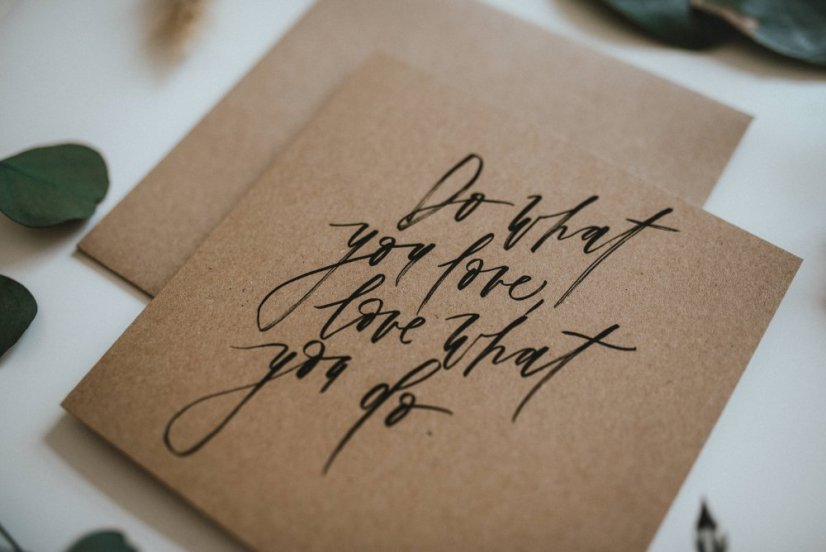 Do what
you love,
love what
you do